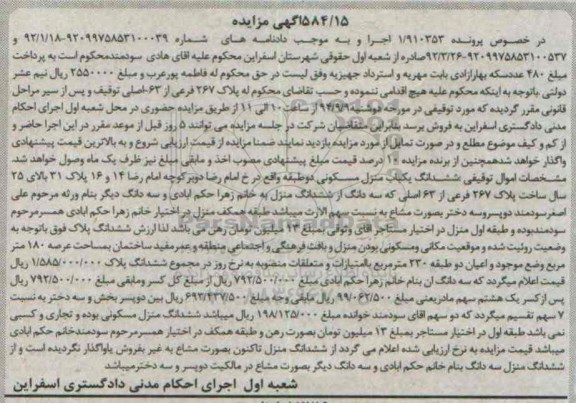 ۵۸۴/۱۵آگهی مزایده
در خصوص پرونده ۱/۹۱۰۳۵۳ اجرا و به موجب دادنامه های شماره ۹۲۰۹۹۷۵۸۵۳۱۰۰۰۳۹-۹۲/۱/۱۸ و
۹۲۰۹۹۷۵۸۵۳۱۰۰۵۳۷-۹۲/۳/۲۶صادره از شعبه اول حقوقی شهرستان اسفراین محکوم علیه آقای هادی سودمندمحکوم است به پرداخت
مبلغ ۴۸۰ عددسکه بهارآزادی بابت مهریه و استرداد جهیزیه وفق لیست در حق محکوم له فاطمه پورعرب و مبلغ ۲۵۵۰۰۰۰ ریال نیم عشر
دولتی باتوجه به اینکه محکوم علیه هیچ اقدامی ننموده و حسب تقاضای محکوم له پلاک ۲۶۷ فرعی از ۶۳-اصلی توقیف و پس از سیر مراحل
قانونی مقرر گردیده که مورد توقیفی در مورخه دوشنبه ۹۴/۹/۹ از ساعت ۱۰ الی ۱۱ از طریق مزایده حضوری در محل شعبه اول اجرای احکام
مدنی دادگستری اسفراین به فروش برسد بنابراین متقاضیان شرکت در جلسه مزایده می توانند ۵ روز قبل از موعد مقرر در این اجرا حاضر و
از کم و کیف موضوع مطلع و در صورت تمایل از مورد مزایده بازدید نمایند ضمنا مزایده از قیمت ارزیابی شروع و به بالاترین قیمت پیشنهادی
واگذار خواهد شدهمچنین از برنده مزایده ۱۰ درصد قیمت مبلغ پیشنهادی مصوب اخذ و مابقی مبلغ نیز ظرف یک ماه وصول خواهد شد.
مشخصات اموال توقیفی: ششدانگ یکباب منزل مسکونی دوطبقه واقع در خ امام رضا دوبرکوچه امام رضا ۱۴ و ۱۶ پلاک ۳۱ بالای ۲۵
سال ساخت پلاک ۲۶۷ فرعی از ۶۳ اصلی که سه دانگ از ششدانگ منزل به خانم زهرا حکم آبادی و سه دانگ دیگر بنام ورثه مرحوم علی
اصغرسودمند دوپسروسه دختر بصورت مشاع به نسبت سهم الارث میباشد طبقه همکف منزل در اختیار خانم زهرا حکم آبادی همسرمرحوم
سودمندبوده و طبقه اول منزل در اختیار مستاجر آقای وثوقی بمبلغ ۱۳ میلیون تومان رهن می باشد لذا ارزش ششدانگ پلاک فوق باتوجه به
وضعیت روئیت شده و موقعیت مکانی ومسکونی بودن منزل و بافت فرهنگی و اجتماعی منطقه و عمرمفید ساختمان بمساحت عرصه ۱۸۰ متر
مربع وضع موجود و اعیان دو طبقه ۲۳۰ مترمربع باامتیازات و متعلقات منصوبه به نرخ روز در مجموع ششدانگ پلاک ۱/۵۸۵/۰۰۰/۰۰۰ ریال
قیمت اعلام میگردد که سه دانگ آن بنام خانم زهرا حکم آبادی مبلغ ۷۹۲/۵۰۰/۰۰۰ ریال از مبلغ کل کسر ومابقی مبلغ ۷۹۲/۵۰۰/۰۰۰ ریال
پس ازکسر یک هشتم سهم مادریعنی مبلغ ۹۹/۰۶۲/۵۰۰ ریال مابقی وجه مبلغ ۶۹۳/۴۳۷/۵۰۰ ریال بین دوپسر بخش و سه دختر به نسبت
۷ سهم تقسیم میگردد که دو سهم آقای سودمند خوانده مبلغ ۱۹۸/۱۲۵/۰۰۰ ریال میباشد ششدانگ منزل مسکونی بوده و تجاری و کسبی
نمی باشد طبقه اول در اختیار مستاجر بمبلغ ۱۳ میلیون تومان بصورت رهن و طبقه همکف در اختیار همسرمرحوم سودمندخانم حکم آبادی
میباشد قیمت مزایده به نرخ ارزیابی شده اعلام می گردد از ششدانگ منزل تاکنون بصورت مشاع به غیر بفروش یاواگذار نگردیده است و از
ششدانگ منزل سه دانگ بنام خانم حکم آبادی و سه دانگ دیگر بصورت مشاع در مالکیت دوپسر و سه دخترمیباشد
شعبه اول اجرای احکام مدنی دادگستری اسفراین